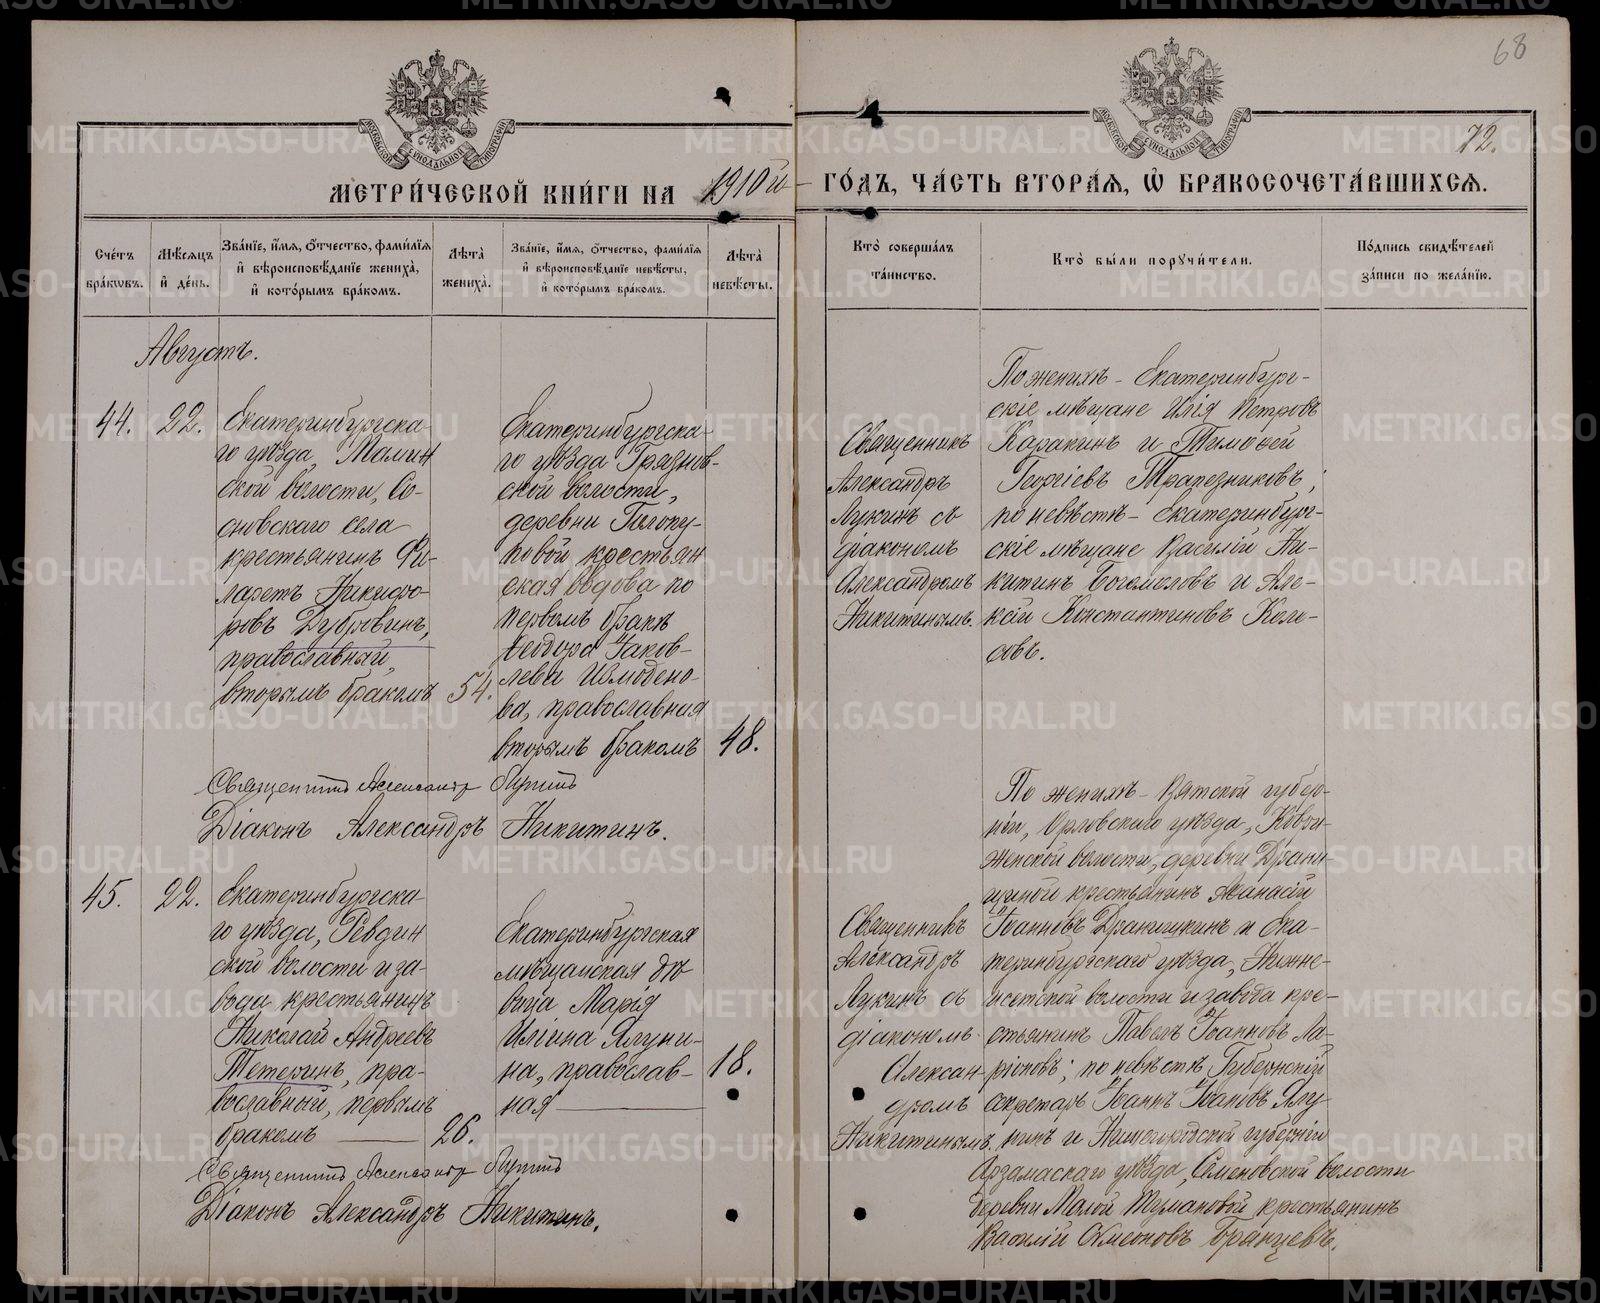 68
72.
МОСКОВСКОЙ СѴНОДАЛЬНОЙ ТИПОГРАФІИ
МОСКОВСКОЙ СѴНОДАЛЬНОЙ ТИПОГРАФІИ
МЕТРИ́ЧЕСКОЙ КНИ́ГИ НА 1910й
ГО́ДЪ, ЧА́СТЬ ВТОРА́Ѧ, Ѽ БРАКОСОЧЕТА́ВШИХСѦ.
Сче́тъ
бра́кѡвъ.
Мѣ́сѧцъ
и҆ де́нь.
Зва́нїе, и҆́мѧ, ѻ҆́тчество, фами́лїѧ
и҆ вѣроисповѣ́данїе жениха̀,
и҆ кото́рымъ бра́комъ.
Лѣ́та̀
жениха̀.
Зва́нїе, и҆́мѧ, ѻ҆́тчество, фами́лїѧ
и҆ вѣроисповѣ́данїе невѣ́сты,
и҆ кото́рымъ бра́комъ.
Лѣ́та̀
невѣ́сты.
Кто̀ соверша́лъ
та́инство.
Кто̀ бы́ли порꙋчи́тели.
По́дпись свидѣ́телей
за́писи по жела́нїю.
Августъ.
44.
22.
Екатеринбургска-
го уѣзда, Мамин
ской волости, Со-
сновскаго села
крестьянинъ Фи-
ларетъ Никифо-
ровъ Дубровинъ,
православный,
вторымъ бракомъ
54.
Екатеринбургска-
го уѣзда Грязнов-
ской волости,
деревни
крестьян
ская вдова по
первомъ бракѣ
Ѳеодора Іаков-
лева Измодено-
ва, православная
вторымъ бракомъ
48.
Священникъ
Александръ
Лукинъ съ
діакономъ
Александромъ
Никитинымъ.
По женихѣ - Екатеринбург-
скіе мѣщане Илія Петровъ
Каракинъ и Тимоѳей
Георгіевъ Трапезниковъ;
по невѣстѣ - Екатеринбург-
скіе мѣщане Василій Ни-
китинъ Богомоловъ и Але-
ксѣй Константиновъ Коле-
совъ.
Священникъ Александръ Лукинъ
Діаконъ Александръ Никитинъ.
45.
22.
Екатеринбургска-
го уѣзда, Ревдин
ской волости и за-
вода крестьянинъ
Николай Андреевъ
Тетеринъ, пра-
вославный, первымъ
бракомъ
26.
Екатеринбургская
мѣщанская дѣ
вица Марія
Ильина Ялуни-
на, православ-
ная
18.
Священникъ
Александръ
Лукинъ съ
діакономъ
Алексан-
дромъ
Никитинымъ.
По женихѣ - Вятской губер-
ніи, Орловскаго уѣзда,
женской волости, деревни Драни-
шной крестьянинъ Аѳанасій
Іоанновъ Дранишкинъ и Ека-
теринбургскаго уѣзда, Нижне-
исетской волости и завода кре-
стьянинъ Павелъ Іоанновъ Ла-
ріоновъ; по невѣстѣ Губернскій
секретарь Іоаннъ Іоановъ Ялу-
нинъ и Нижегородской губерніи
Арзамаскаго уѣзда, Семеновской волости
деревни Малой Тумановой крестьянинъ
Василій Симеоновъ Бранцевъ.
Священникъ Александръ Лукинъ
Діаконъ Александръ Никитинъ.
METRIKI.GASO-URAL.RU